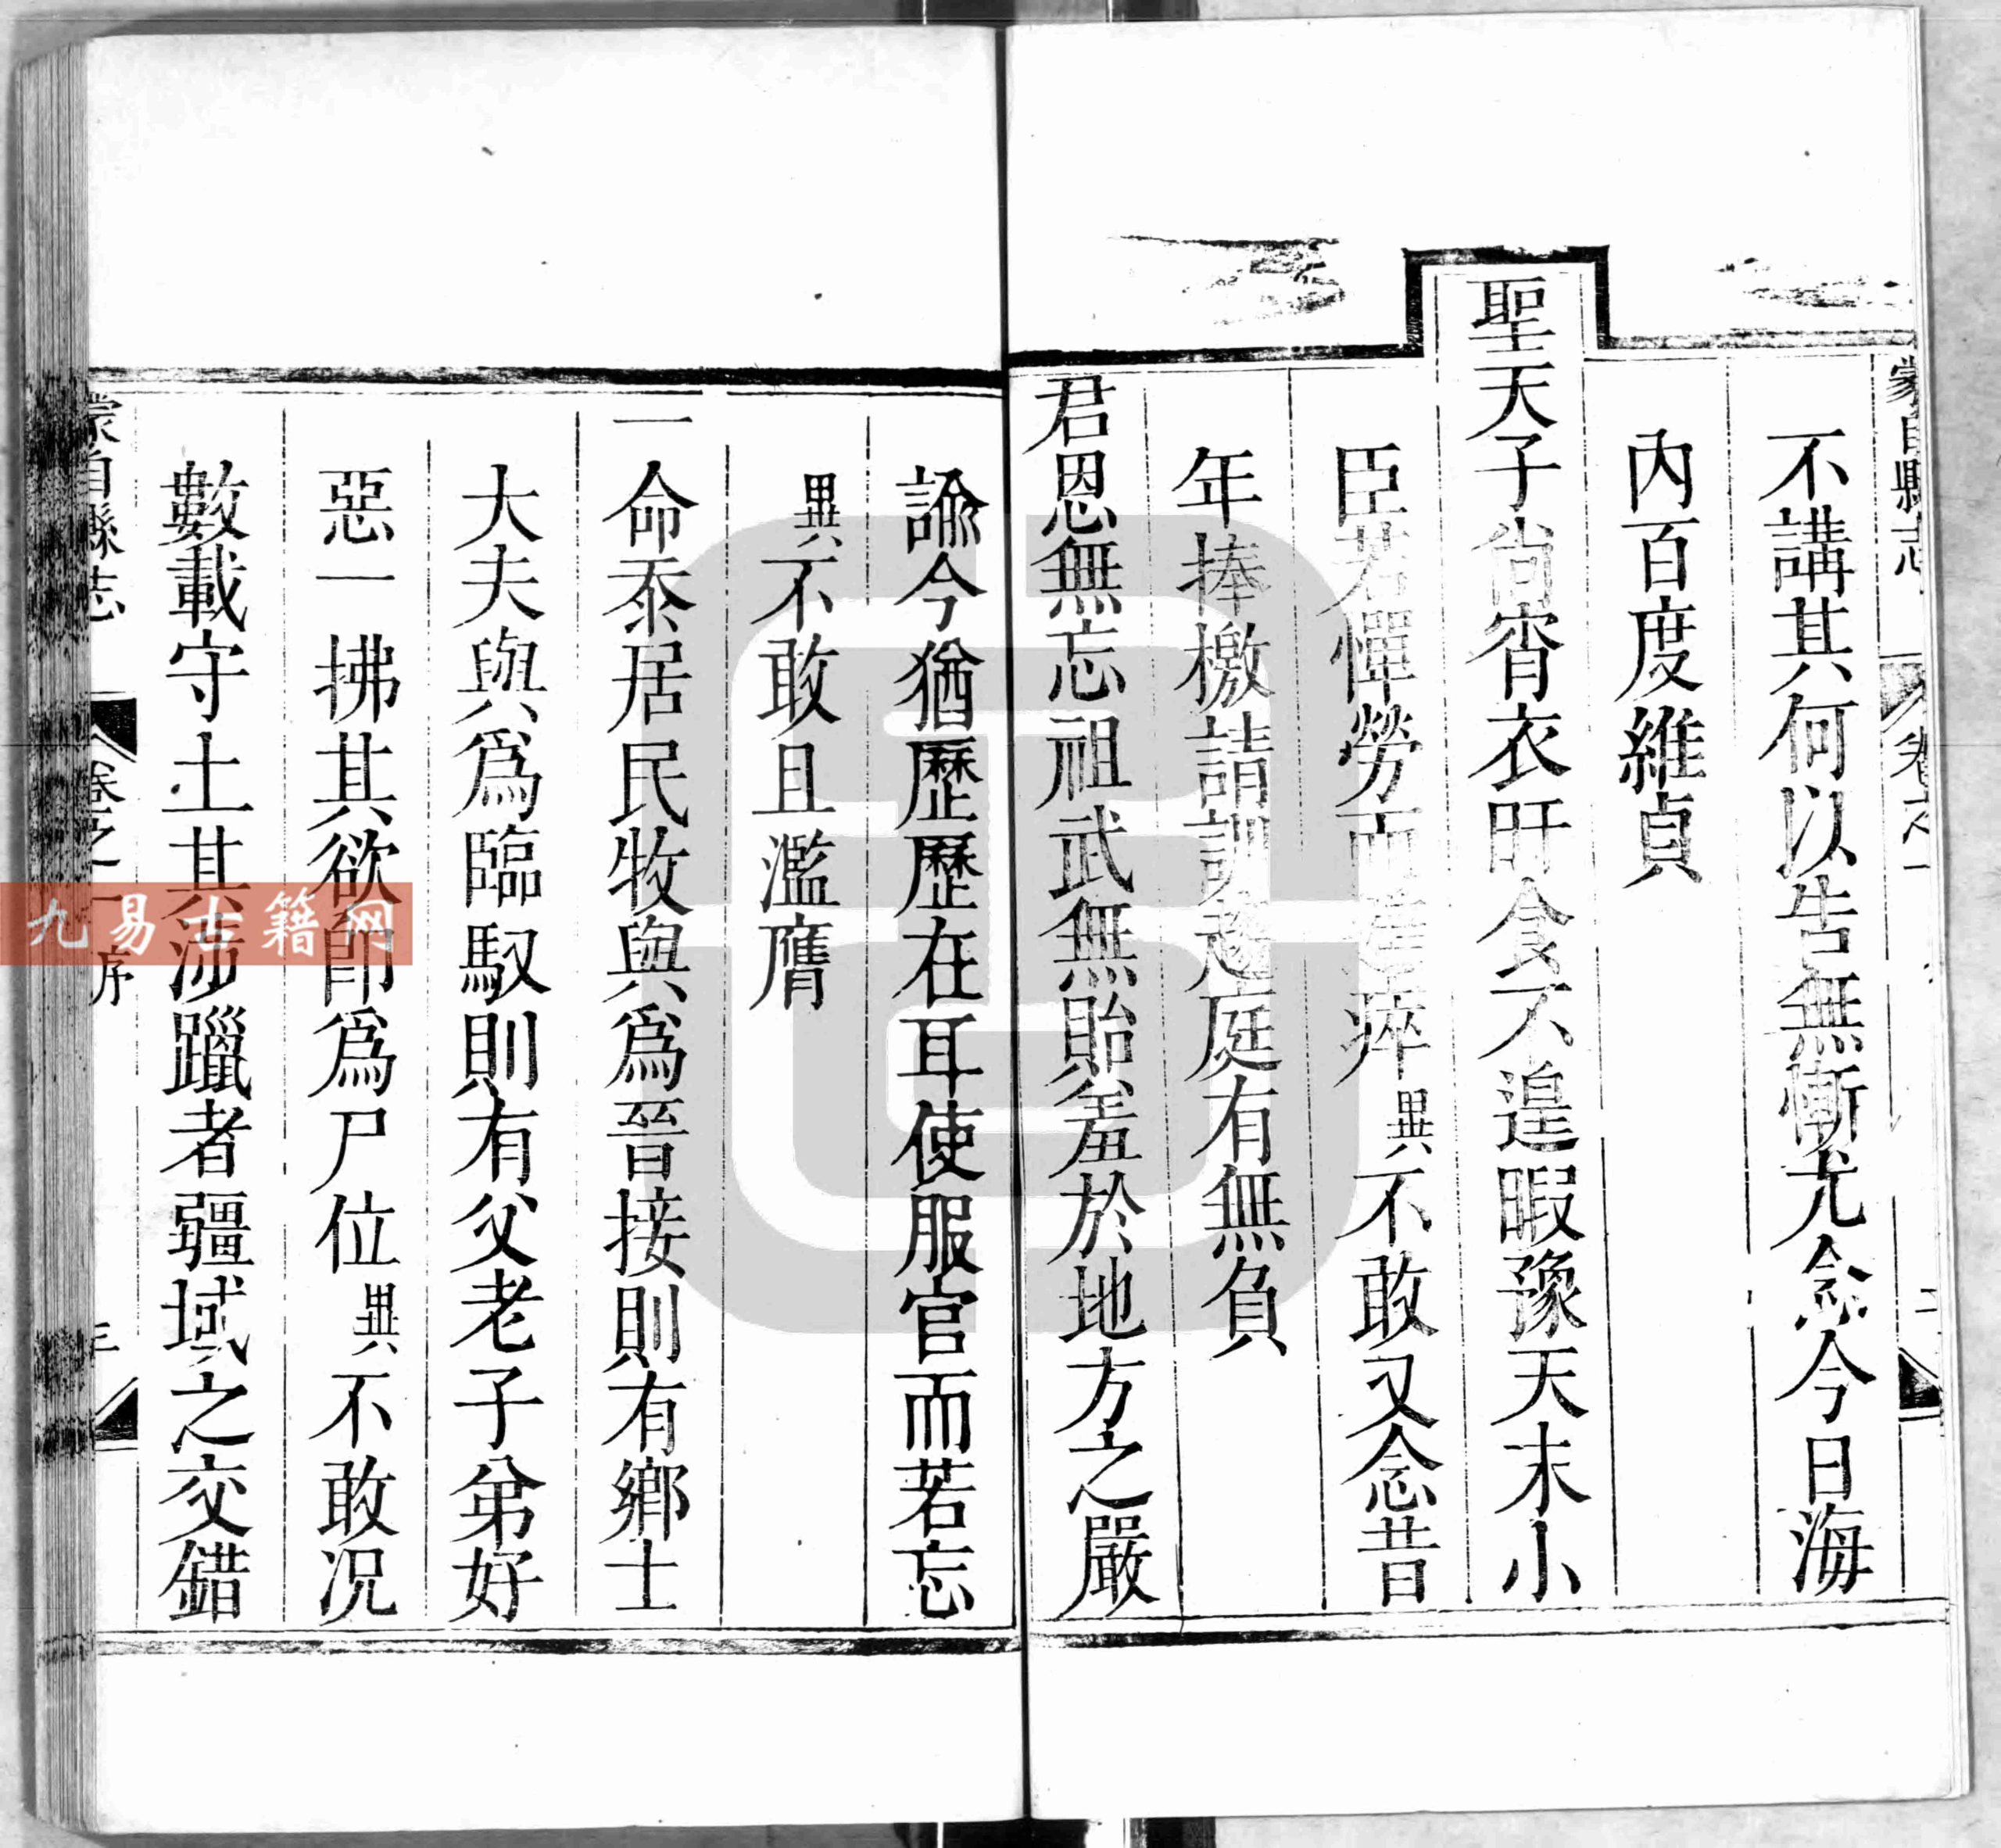 蒙自縣志 卷之一 二
不講其何以告無慚尤念今日海
內百度維貞
聖天子尚宵衣旰食不遑暇豫天末小
臣若憚勞而辭瘁異不敢又念昔
年捧檄請訓趨庭有無負
君恩無忘祖武無貽羞於地方之嚴
諭今猶歷歷在耳使服官而若忘
異不敢且濫膺
一命忝居民牧與爲晉接則有鄉士
大夫與爲臨馭則有父老子弟好
惡一拂其欲卽爲尸位異不敢况
數載守土其涉躐者疆域之交錯
蒙自縣志 卷之一 序 三
九易古籍网